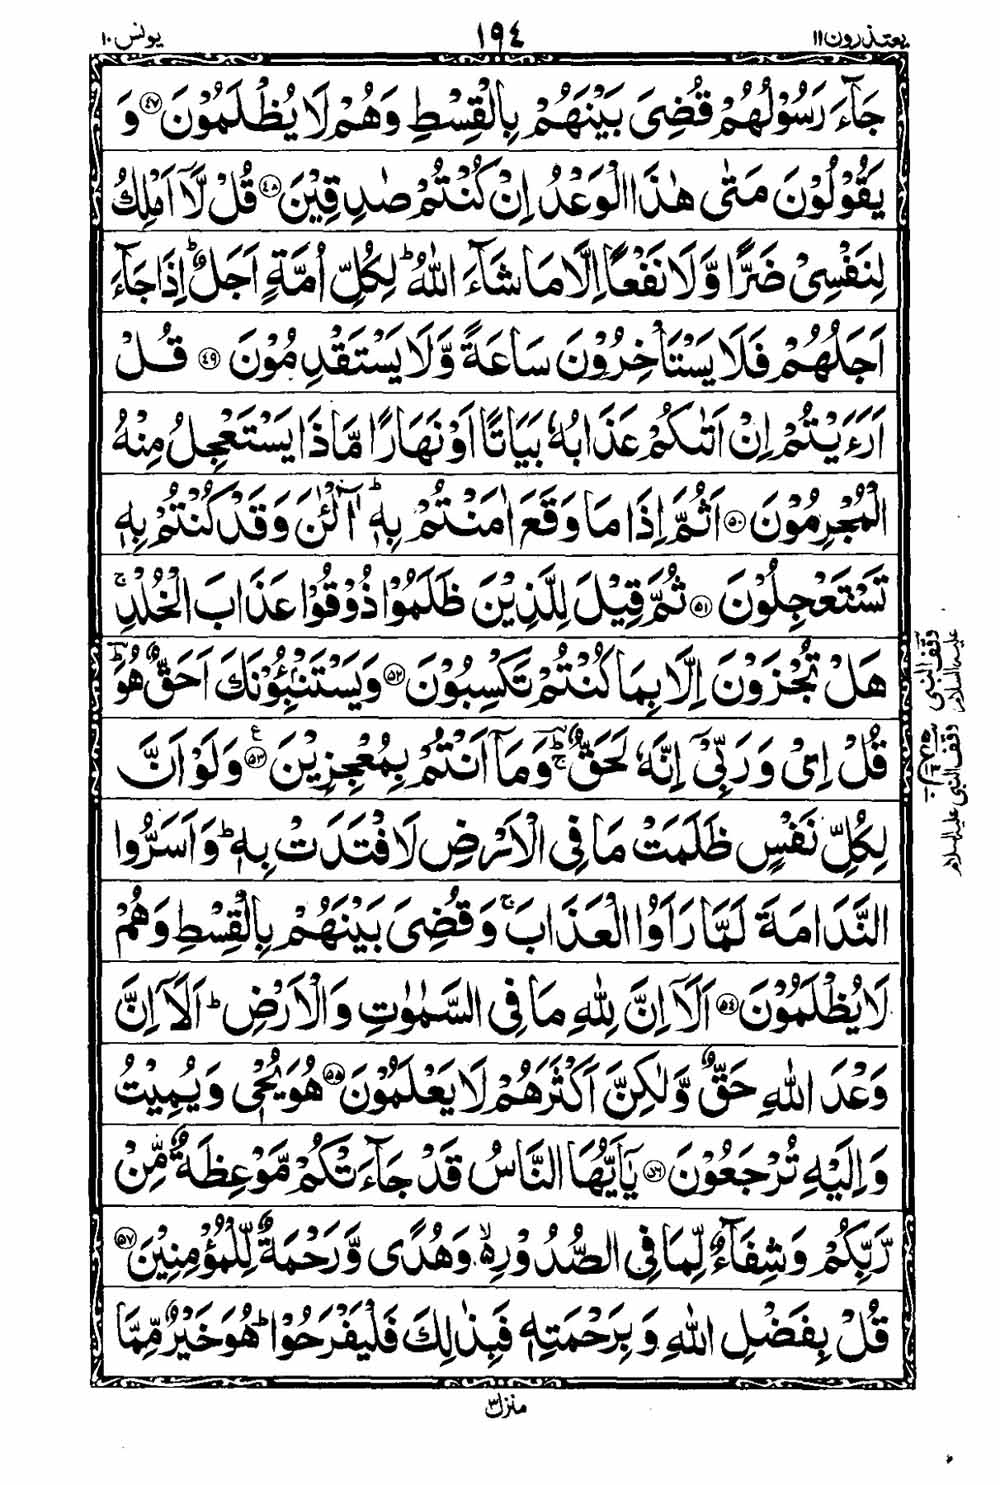 يعتذرون ١١ ١٩٤ يونس ١٠
جَآءَ رَسُوْلُهُمْ قُضِىَ بَيْنَهُمْ بِالْقِسْطِ وَهُمْ لَا يُظْلَمُوْنَ ﴿۴۷﴾ وَ
يَقُوْلُوْنَ مَتٰى هٰذَا الْوَعْدُ اِنْ كُنْتُمْ صٰدِقِيْنَ ﴿۴۸﴾ قُلْ لَّاۤ اَمْلِكُ
لِنَفْسِىْ ضَرًّا وَّلَا نَفْعًا اِلَّا مَا شَآءَ اللّٰهُ ؕ لِكُلِّ اُمَّةٍ اَجَلٌ ؕ اِذَا جَآءَ
اَجَلُهُمْ فَلَا يَسْتَاْخِرُوْنَ سَاعَةً وَّلَا يَسْتَقْدِمُوْنَ ﴿۴۹﴾ قُلْ
اَرَءَيْتُمْ اِنْ اَتٰىكُمْ عَذَابُهٗ بَيَاتًا اَوْ نَهَارًا مَّاذَا يَسْتَعْجِلُ مِنْهُ
الْمُجْرِمُوْنَ ﴿۵۰﴾ اَثُمَّ اِذَا مَا وَقَعَ اٰمَنْتُمْ بِهٖ ؕ آٰلْـٰٔنَ وَقَدْ كُنْتُمْ بِهٖ
تَسْتَعْجِلُوْنَ ﴿۵۱﴾ ثُمَّ قِيْلَ لِلَّذِيْنَ ظَلَمُوْا ذُوْقُوْا عَذَابَ الْخُلْدِ ۚ
هَلْ تُجْزَوْنَ اِلَّا بِمَا كُنْتُمْ تَكْسِبُوْنَ ﴿۵۲﴾ وَيَسْتَنْۢبِـُٔوْنَكَ اَحَقٌّ هُوَ ؕ
قُلْ اِىْ وَرَبِّىْۤ اِنَّهٗ لَحَقٌّ ؕۚ وَمَاۤ اَنْتُمْ بِمُعْجِزِيْنَ ﴿۵۳﴾ ع وَلَوْ اَنَّ
لِكُلِّ نَفْسٍ ظَلَمَتْ مَا فِى الْاَرْضِ لَافْتَدَتْ بِهٖ ؕ وَاَسَرُّوا
النَّدَامَةَ لَمَّا رَاَوُا الْعَذَابَ ۚ وَقُضِىَ بَيْنَهُمْ بِالْقِسْطِ وَهُمْ
لَا يُظْلَمُوْنَ ﴿۵۴﴾ اَلَاۤ اِنَّ لِلّٰهِ مَا فِى السَّمٰوٰتِ وَالْاَرْضِ ؕ اَلَاۤ اِنَّ
وَعْدَ اللّٰهِ حَقٌّ وَّلٰكِنَّ اَكْثَرَهُمْ لَا يَعْلَمُوْنَ ﴿۵۵﴾ هُوَ يُحْىٖ وَيُمِيْتُ
وَاِلَيْهِ تُرْجَعُوْنَ ﴿۵۶﴾ يٰۤاَيُّهَا النَّاسُ قَدْ جَآءَتْكُمْ مَّوْعِظَةٌ مِّنْ
رَّبِّكُمْ وَشِفَآءٌ لِّمَا فِى الصُّدُوْرِ ۙ۬ وَهُدًى وَّرَحْمَةٌ لِّلْمُؤْمِنِيْنَ ﴿۵۷﴾
قُلْ بِفَضْلِ اللّٰهِ وَبِرَحْمَتِهٖ فَبِذٰلِكَ فَلْيَفْرَحُوْا ؕ هُوَ خَيْرٌ مِّمَّا
منزل ٣
وقف النبى عليه السلام
وقف النبى عليه السلام